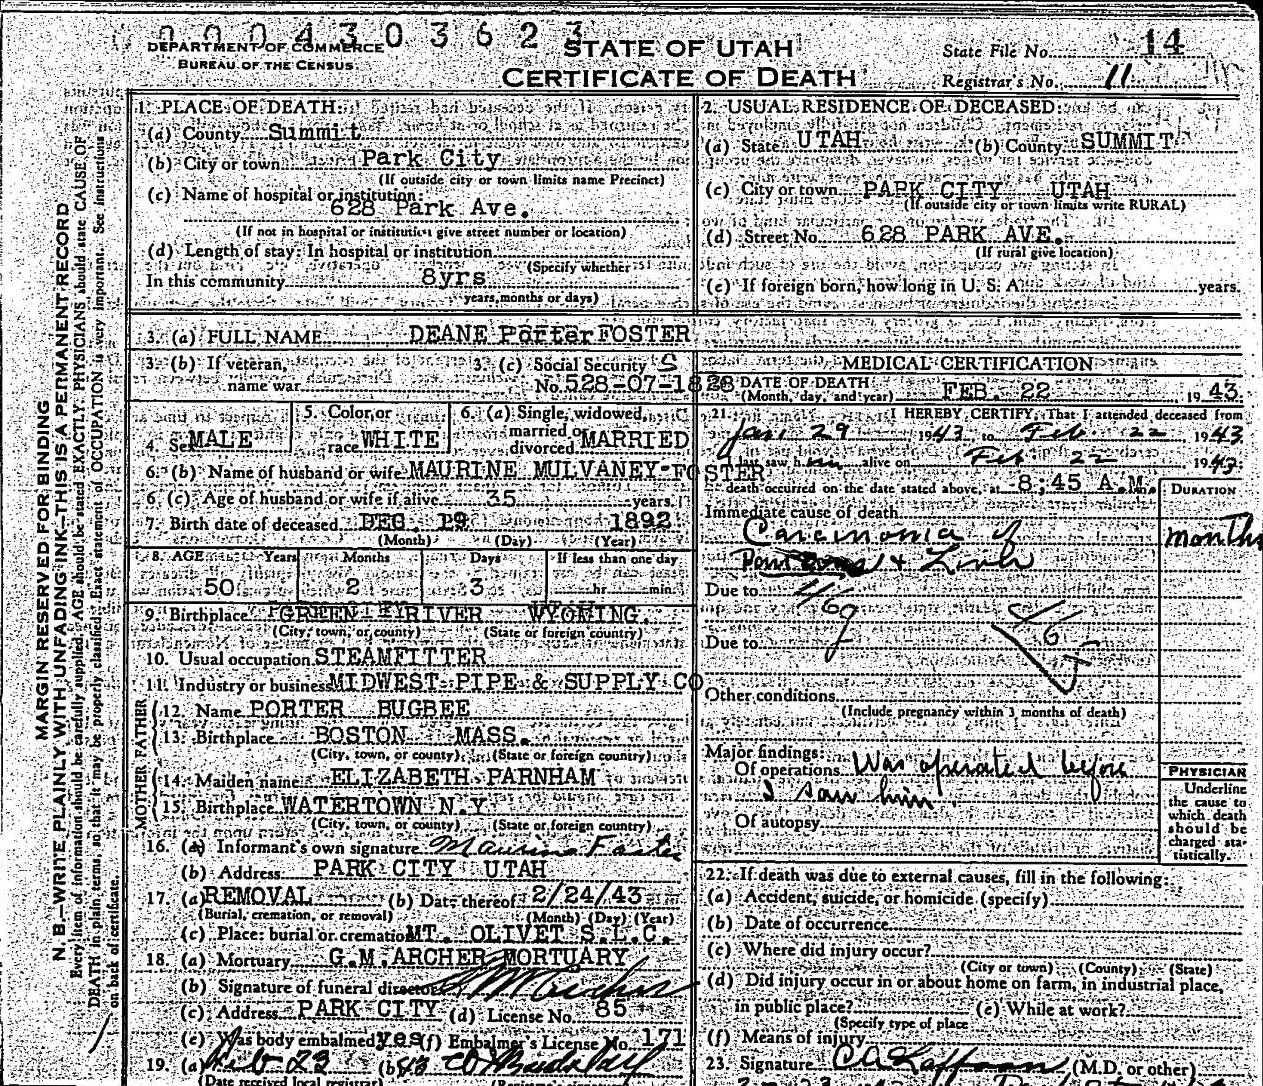 0004303623
DEPARTMENT OF COMMERCE
BUREAU OF THE CENSUS
STATE OF UTAH
CERTIFICATE OF DEATH
State File No. 14
Registrar's No. 11
MARGIN RESERVED FOR BINDING
N. B.—WRITE PLAINLY WITH UNFADING INK—THIS IS A PERMANENT RECORD
Every item of information should be carefully supplied. AGE should be stated EXACTLY. PHYSICIANS should state CAUSE OF
DEATH in plain terms, so that it may be properly classified. Exact statement of OCCUPATION is very important. See instructions
on back of certificate.
1. PLACE OF DEATH:
(a) County Summit
(b) City or town Park City
(If outside city or town limits name Precinct)
(c) Name of hospital or institution:
628 Park Ave.
(If not in hospital or institution give street number or location)
(d) Length of stay: In hospital or institution
(Specify whether
In this community 8yrs
years, months or days)
2. USUAL RESIDENCE OF DECEASED:
(a) State UTAH (b) County SUMMIT
(c) City or town PARK CITY UTAH
(If outside city or town limits write RURAL)
(d) Street No. 628 PARK AVE.
(If rural give location)
(e) If foreign born, how long in U. S. A. years.
3. (a) FULL NAME DEANE Porter FOSTER
3. (b) If veteran,
name war
3. (c) Social Security S
No. 528-07-1828
4. Sex MALE
5. Color or
race WHITE
6. (a) Single, widowed,
married or
divorced MARRIED
6. (b) Name of husband or wife MAURINE MULVANEY FOSTER
6. (c) Age of husband or wife if alive 35 years
7. Birth date of deceased DEC. 19 1892
(Month) (Day) (Year)
8. AGE Years Months Days If less than one day
50 2 3 hr. min.
9. Birthplace GREEN RIVER WYOMING.
(City, town, or county) (State or foreign country)
10. Usual occupation STEAMFITTER
11. Industry or business MIDWEST PIPE & SUPPLY CO
FATHER
12. Name PORTER BUGBEE
13. Birthplace BOSTON MASS.
(City, town, or county) (State or foreign country)
MOTHER
14. Maiden name ELIZABETH PARNHAM
15. Birthplace WATERTOWN N.Y
(City, town, or county) (State or foreign country)
16. (a) Informant's own signature Maurine Foster
(b) Address PARK CITY UTAH
17. (a) REMOVAL (b) Date thereof 2/24/43
(Burial, cremation, or removal) (Month) (Day) (Year)
(c) Place: burial or cremation MT. OLIVET S.L.C.
18. (a) Mortuary G.M.ARCHER MORTUARY
(b) Signature of funeral director GM Archer
(c) Address PARK CITY (d) License No. 85
(e) Was body embalmed yes (f) Embalmer's License No. 171
19. (a) Feb 23 (b) 43
(Date received local registrar)
MEDICAL CERTIFICATION
20 DATE OF DEATH
(Month, day, and year) FEB. 22 1943.
21. I HEREBY CERTIFY, That I attended deceased from
Jan. 29 1943, to Feb. 22, 1943
I last saw him alive on Feb. 22 1943.
death occurred on the date stated above, at 8:45 A.M.
DURATION
Immediate cause of death
Carcinoma of months
& Liver
Due to 46g
Due to
Other conditions
(Include pregnancy within 3 months of death)
Major findings:
Of operations Was operated before
I saw him.
Of autopsy
PHYSICIAN
Underline
the cause to
which death
should be
charged sta-
tistically.
22. If death was due to external causes, fill in the following:
(a) Accident, suicide, or homicide (specify)
(b) Date of occurrence
(c) Where did injury occur?
(City or town) (County) (State)
(d) Did injury occur in or about home on farm, in industrial place,
in public place? (e) While at work?
(Specify type of place
(f) Means of injury
23. Signature (M.D. or other)